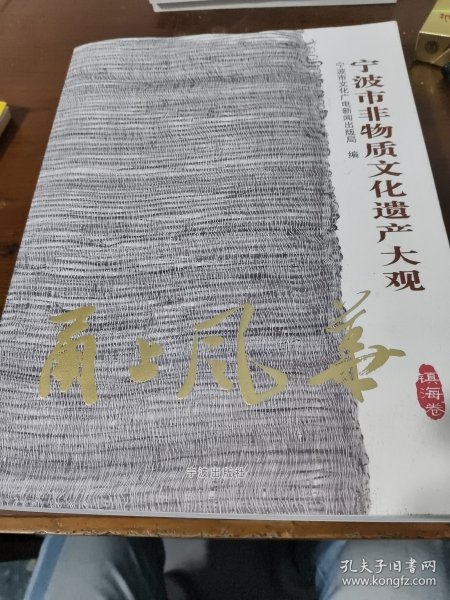 宁波市非物质文化遗产大观
宁波市文化广电新闻出版局 编
甬上风华
镇海卷
宁波出版社
孔夫子旧书网
www.kongfz.com